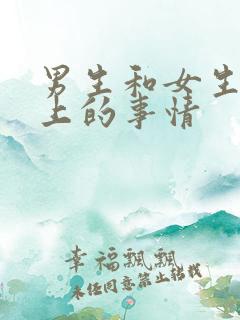 男生和女生
上的事情
幸福飘飘
未经同意禁止转载